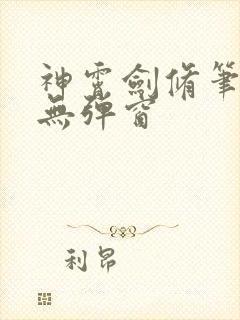 神霄劍脩筆
無彈窗
利昂